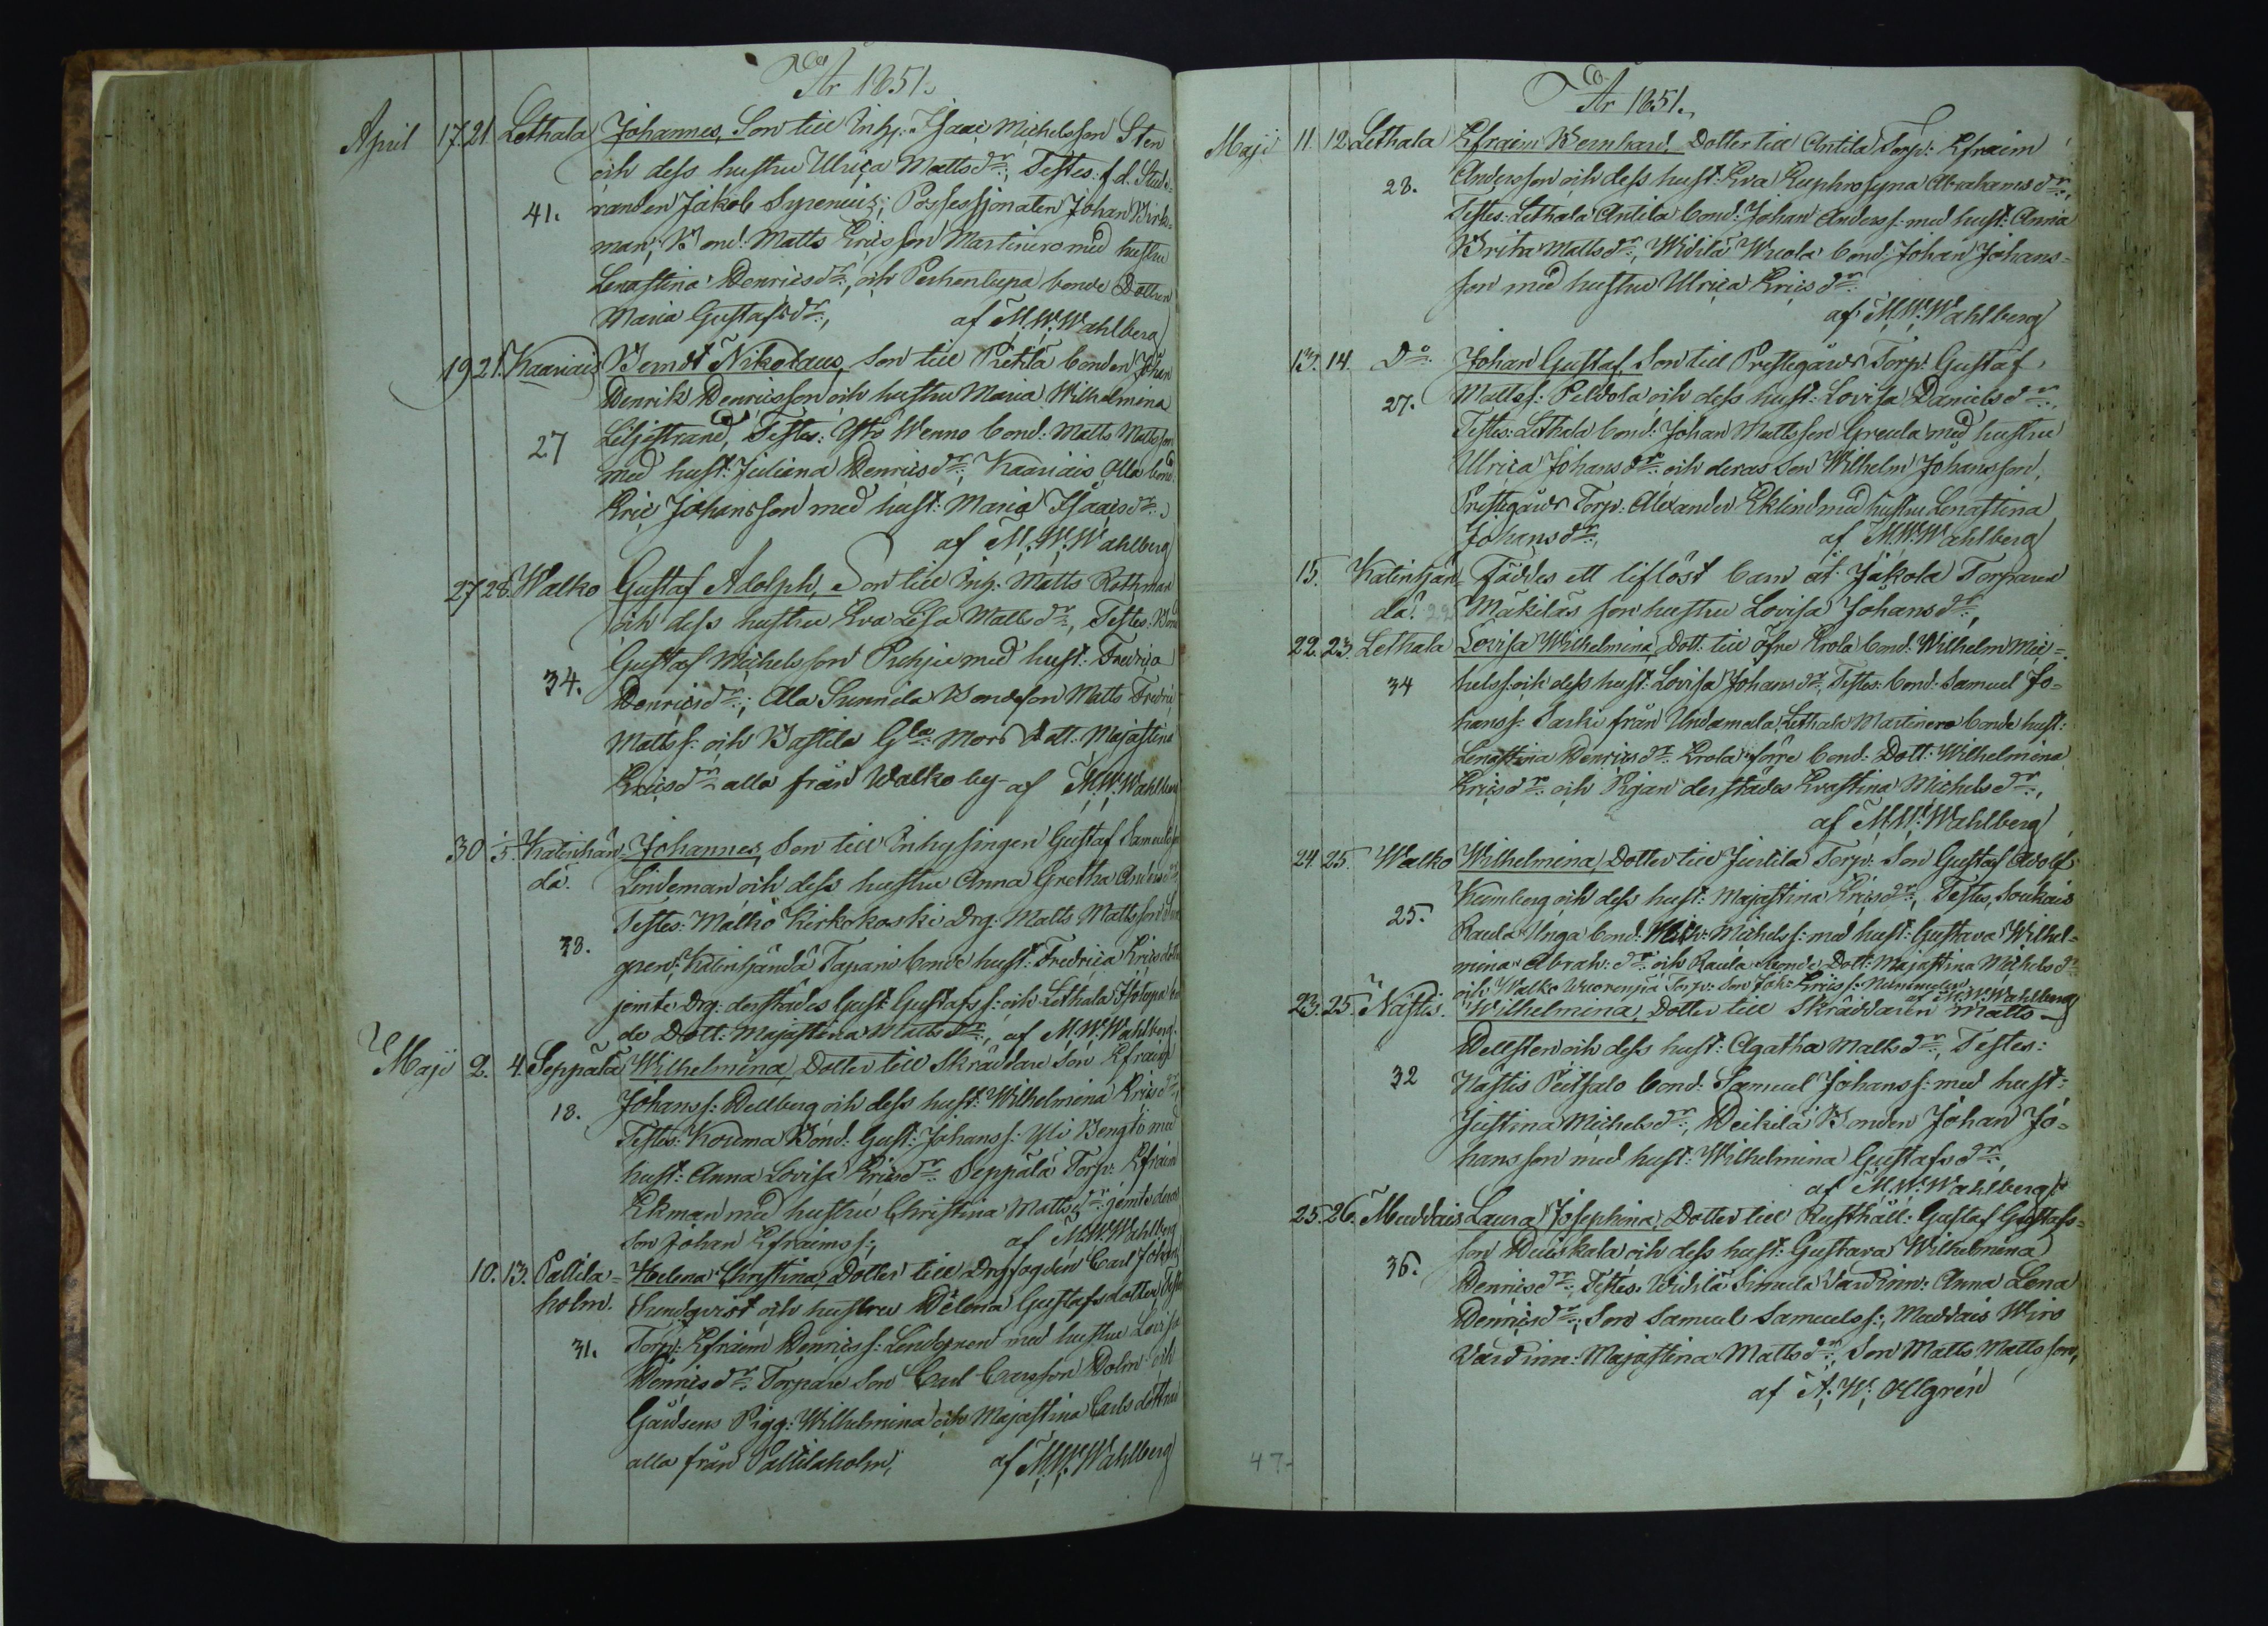 År 1851.
April 17. 21 Lethala Johannes, Son till Inhys: Isaac Michelsson Sten
och dess hustru Ulrica Mattsdr:, Testes: f.d. Stude=
41. randen Jakob Syrenius; Possessionaten Johan Birk=
man, Bond: Matts Ericsson Martinero med hustru
Lenastina Henricsdr:, och bonde Dottren
Maria Gustafsdr:, af M. W. Wahlberg
19 21. Kaariais Berndt Nikolaus, Son till Prekla bonden Johan
Henrik Henricsson och hustru Maria Wilhelmina
27 Liljestrand, Testes: Yli Wenno bond: Matts Mattsson
med hust: Juliana Henricsdr:, Kaariais Olla bond:
Eric Johansson med hust: Maria Isaacsdr:
af M. W. Wahlberg
27 28. Walko Gustaf Adolph, Son till Inh: Matts Rothman
och dess hustru Eva Lisa Mattsdr:, Testes:
Gustaf Michelsson med hust: Fredrica
34. Henricsdr:; Ala Sunnila Bondeson Matts Fredric
Mattss: och Bastila Gla: Mors Dott: Majastina
Ericsdr: alla från Walko by- af M. W. Wahlberg
30 5. Katinhän= Johannes, Son till Inhysingen Gustaf Samuelsson
dä. Lindeman och dess hustru Anna Gretha Andersdr:
Testes: Malko Kirkokoski Drg: Matts Mattsson
38. gren; Katinhändä Tapani bonde hust: Fredrica Ericsdotter
jemte Drg: derstädes Gust: Gustafss: och Lethala Isotupa bon=
de Dott: Majastina Mattsdr:, af M. W. Wahlberg
Maji 2. 4. Seppälä Wilhelmina, Dotter till Skräddare Son Efraim
18. Johanss: Hellberg och dess hust: Wilhelmina Ericsdr:,
Testes: Kouma Bond: Gust: Johanss: Yli Bengtö med
hust: Anna Lovisa Ericsdr: Seppälä Torp: Efraim
Ekman med hustru Christina Mattsdr: jemte deras
Son Johan Efraimss:, af M. W. Wahlberg
10. 13. Paltila= Helena Christina, Dotter till Drgfogden Carl Johan
holm. Sundqvist och hustru Helena Gustafsdotter, Testes
31. Torp: Efraim Henricss: Lindgren med hustru Lovisa
Henricsdr: Torpare Son Carl Carlsson Holm och
Gårdsens Pigg: Wilhelmina och Majastina Carlsdöttrar
alla från Paltilaholm, af M. W. Wahlberg
År 1851.
Maji 11. 12 Lethala Efraim Bernhard, Dotter till Antila Torp: Efraim
28. Andersson och dess hust: Eva Euphrosyna Abrahamsdr:,
Testes: Lethala Antila bond: Johan Anderss: med hust: Anna
Brita Mattsdr:, Widilä Wuola bond: Johan Johans=
son med hustru Ulrica Ericsdr:
af M. W. Wahlberg
13. 14. Do: Johan Gustaf, Son till Prestegårds Torp: Gustaf
27. Mattss: Peldola och dess hust: Lovisa Danielsdr:,
Testes: Lethala bond: Johan Mattsson Greula med hustru
Ulrica Johansdr: och deras Son Wilhelm Johansson,
Prestegårds Torp: Alexander Eklind med hustru Lenastina
Johansdr:, af M. W. Wahlberg
15. Katinhän= Föddes ett liflöst barn åt Jäkola Torparen
dä. 22 Mäkiläs son hustru Lovisa Johansdr:,
22. 23. Lethala Lovisa Wilhelmina, Dott: till öfre Krola bond: Wilhelm Mic=
34 helss: och dess hust: Lovisa Johansdr:, Testes: bond: Samuel Jo=
hanss: Sarki från Undamala, Lethala Martinero bonde hust:
Lenastina Henricsdr: Krola förre bond: Dott: Wilhelmina
Ericsdr: och Pigan derstädes Evastina Michelsdr:,
af M. W. Wahlberg
24. 25. Walko Wilhelmina, Dotter till Jutila Torp: Son Gustaf Adolf
Kumberg och dess hust: Majastina Ericsdr:, Testes, Soukais
25. Raula Unga bond: Mich: Michelss: med hust: Gustava Wilhel=
mina Abrah: dr: och Raula bonde Dott: Majastina Michelsdr:
och Walko Wuorenpä Torp: Son Joh: Ericss:
af M. W. Wahlberg
23. 25. Nästis. Wilhelmina, Dotter till Skräddaren Matts
Hellsten och dess hust: Agatha Mattsdr:, Testes:
32 Nästis Peitsalo bond: Samuel Johanss: med hust:
Justina Michelsdr:, Heikilä Bonden Johan Jo=
hansson med hust: Wilhelmina Gustafsdr:,
af M. W. Wahlberg
25. 26. Muddais Laura Josephina, Dotter till Rusthåll: Gustaf Gustafs=
36. son Huiskala och dess hust: Gustava Wilhelmina
Henricsdr:, Testes: Widilä Simula Värdinn: Anna Lena
Henricsdr:; Son Samuel Samuelss:, Muddais Wiro
Värdinn: Majastina Mattsdr:, Son Matts Mattsson,
af A. W. Allgrén
47-